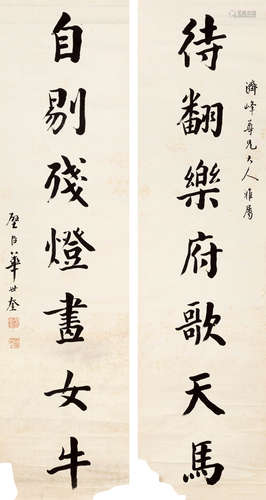 濟峰尊兄大人雅屬
待翻樂府歌天馬
自剔殘燈畫女牛
璧臣華世奎